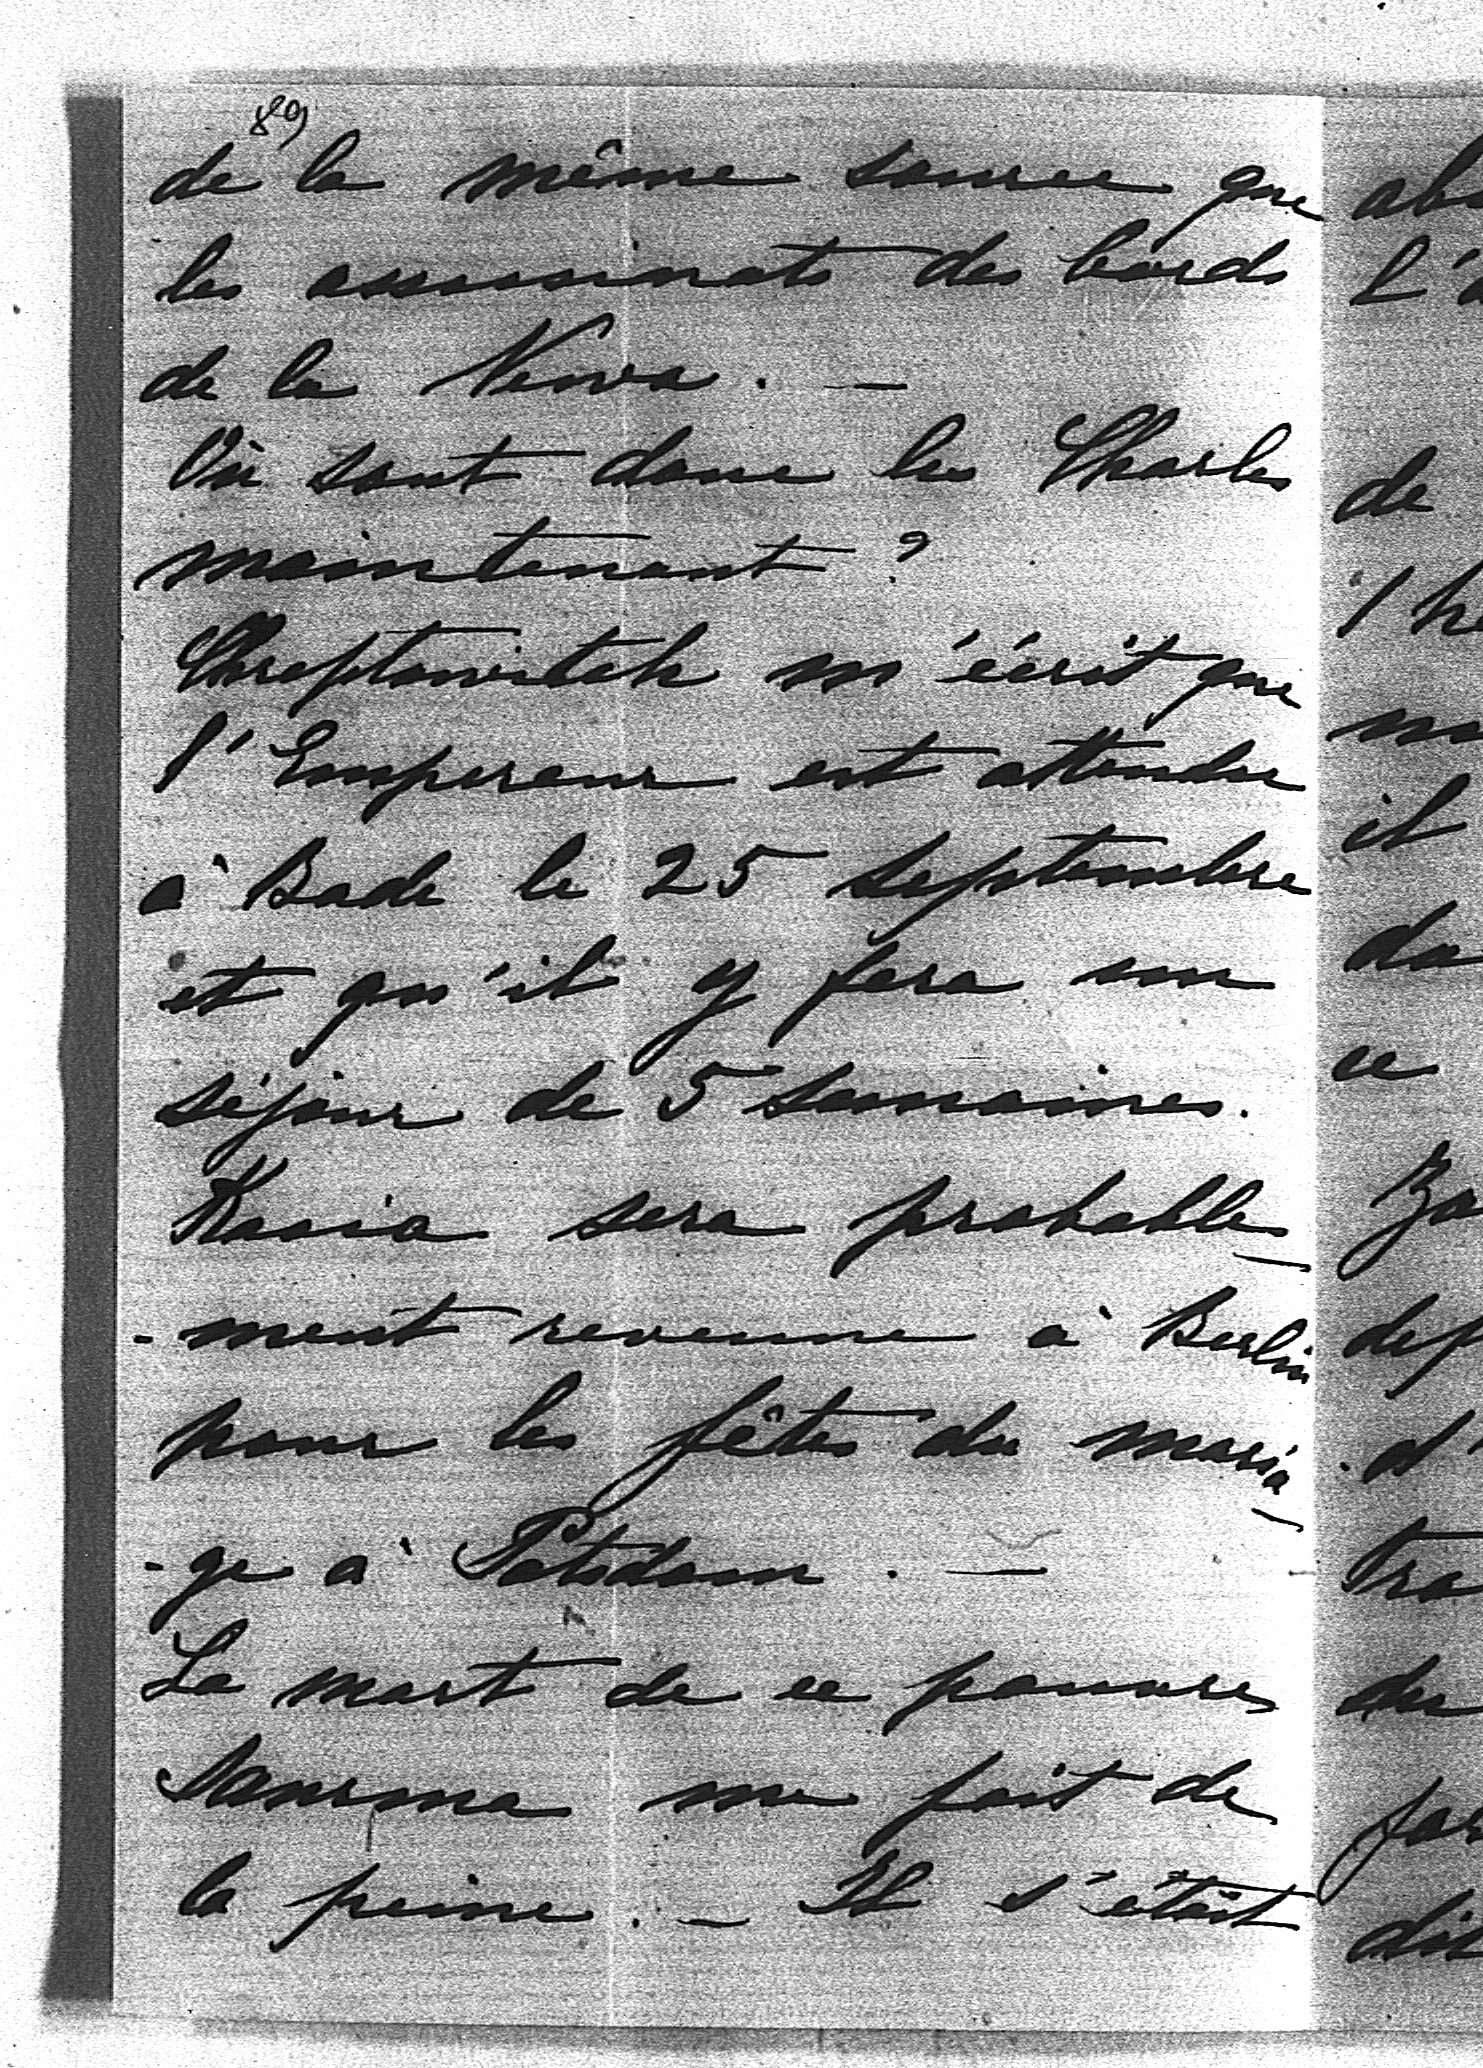 89
de la même source que
les assassinats des bords
de la Newa. —
Où sont donc les Charles
maintenant ?
Chreptowitch m'écrit que
l'Empereur est attendu
à Bade le 25 septembre
et qu'il y fera un
séjour de 5 semaines.
Kasia sera probable-
-ment revenue à Berlin
pour les fêtes du maria-
-ge à Potsdam. —
La mort de ce pauvre
Saurma me fait de
la peine. — Il s'était